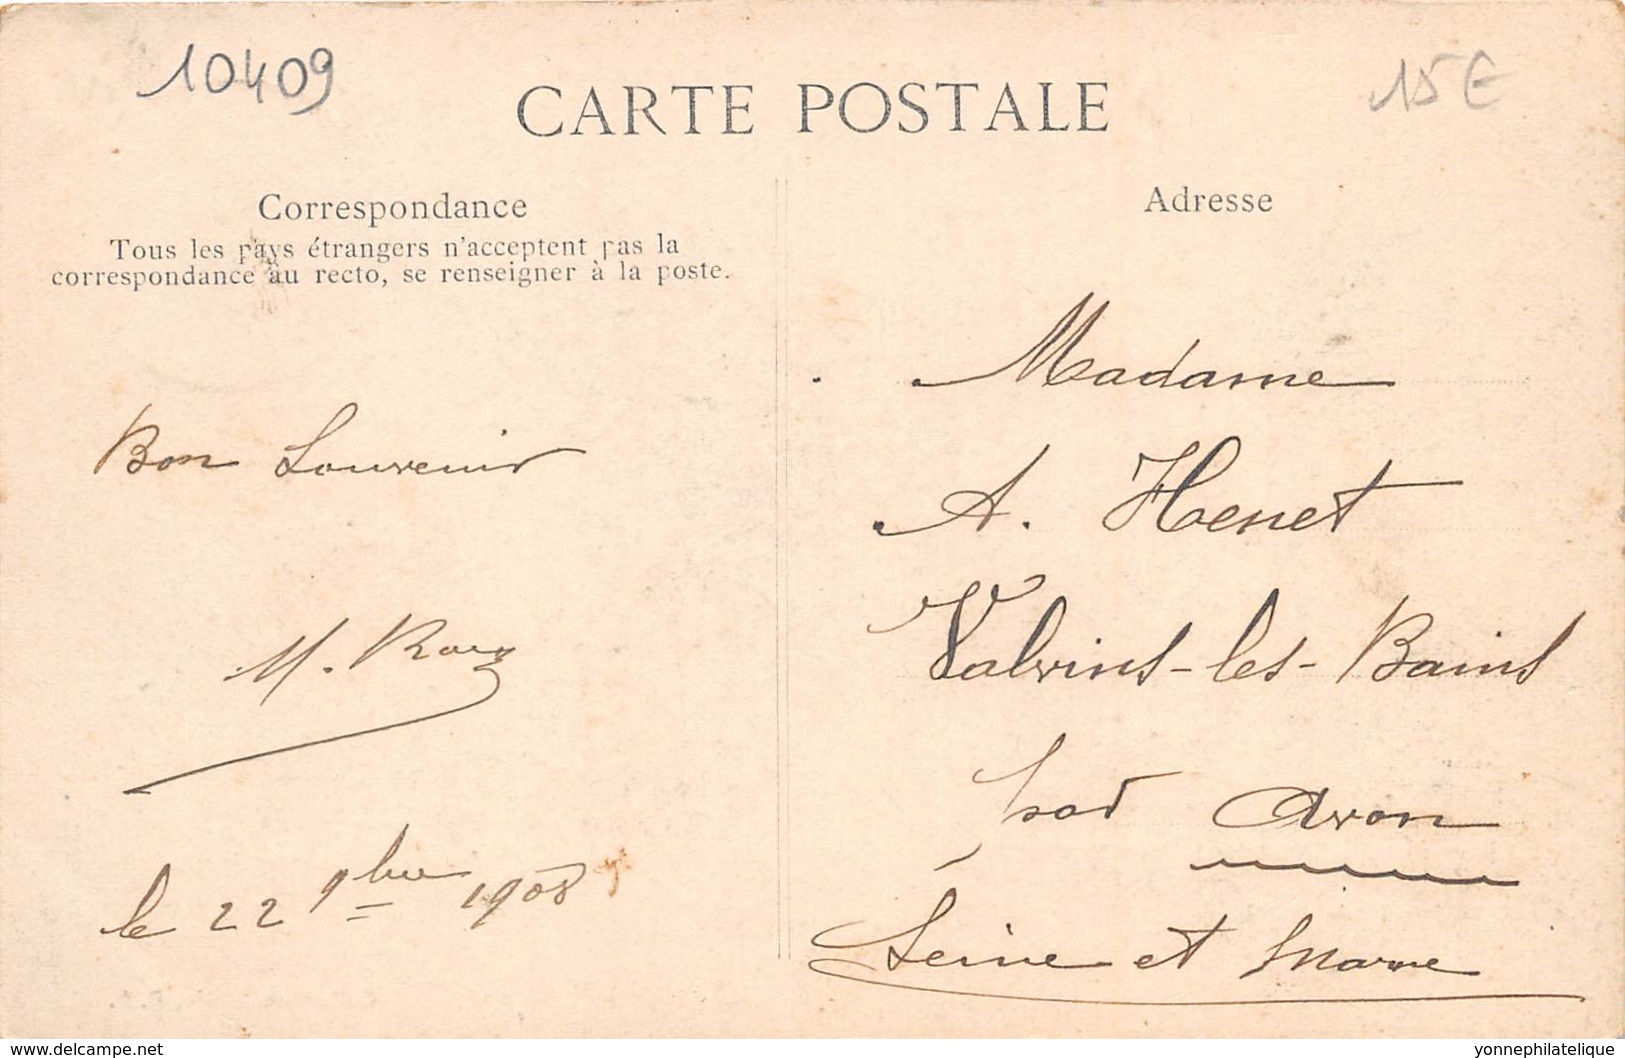 10409
15 €
CARTE POSTALE
Correspondance
Tous les pays étrangers n'acceptent pas la
correspondance au recto, se renseigner à la poste.
Bon Souvenir
M.
le 22 9bre 1908
Adresse
Madame
A. Henet
Valvins-les-Bains
par Avon
Seine et Marne
www.delcampe.net
yonnephilatelique